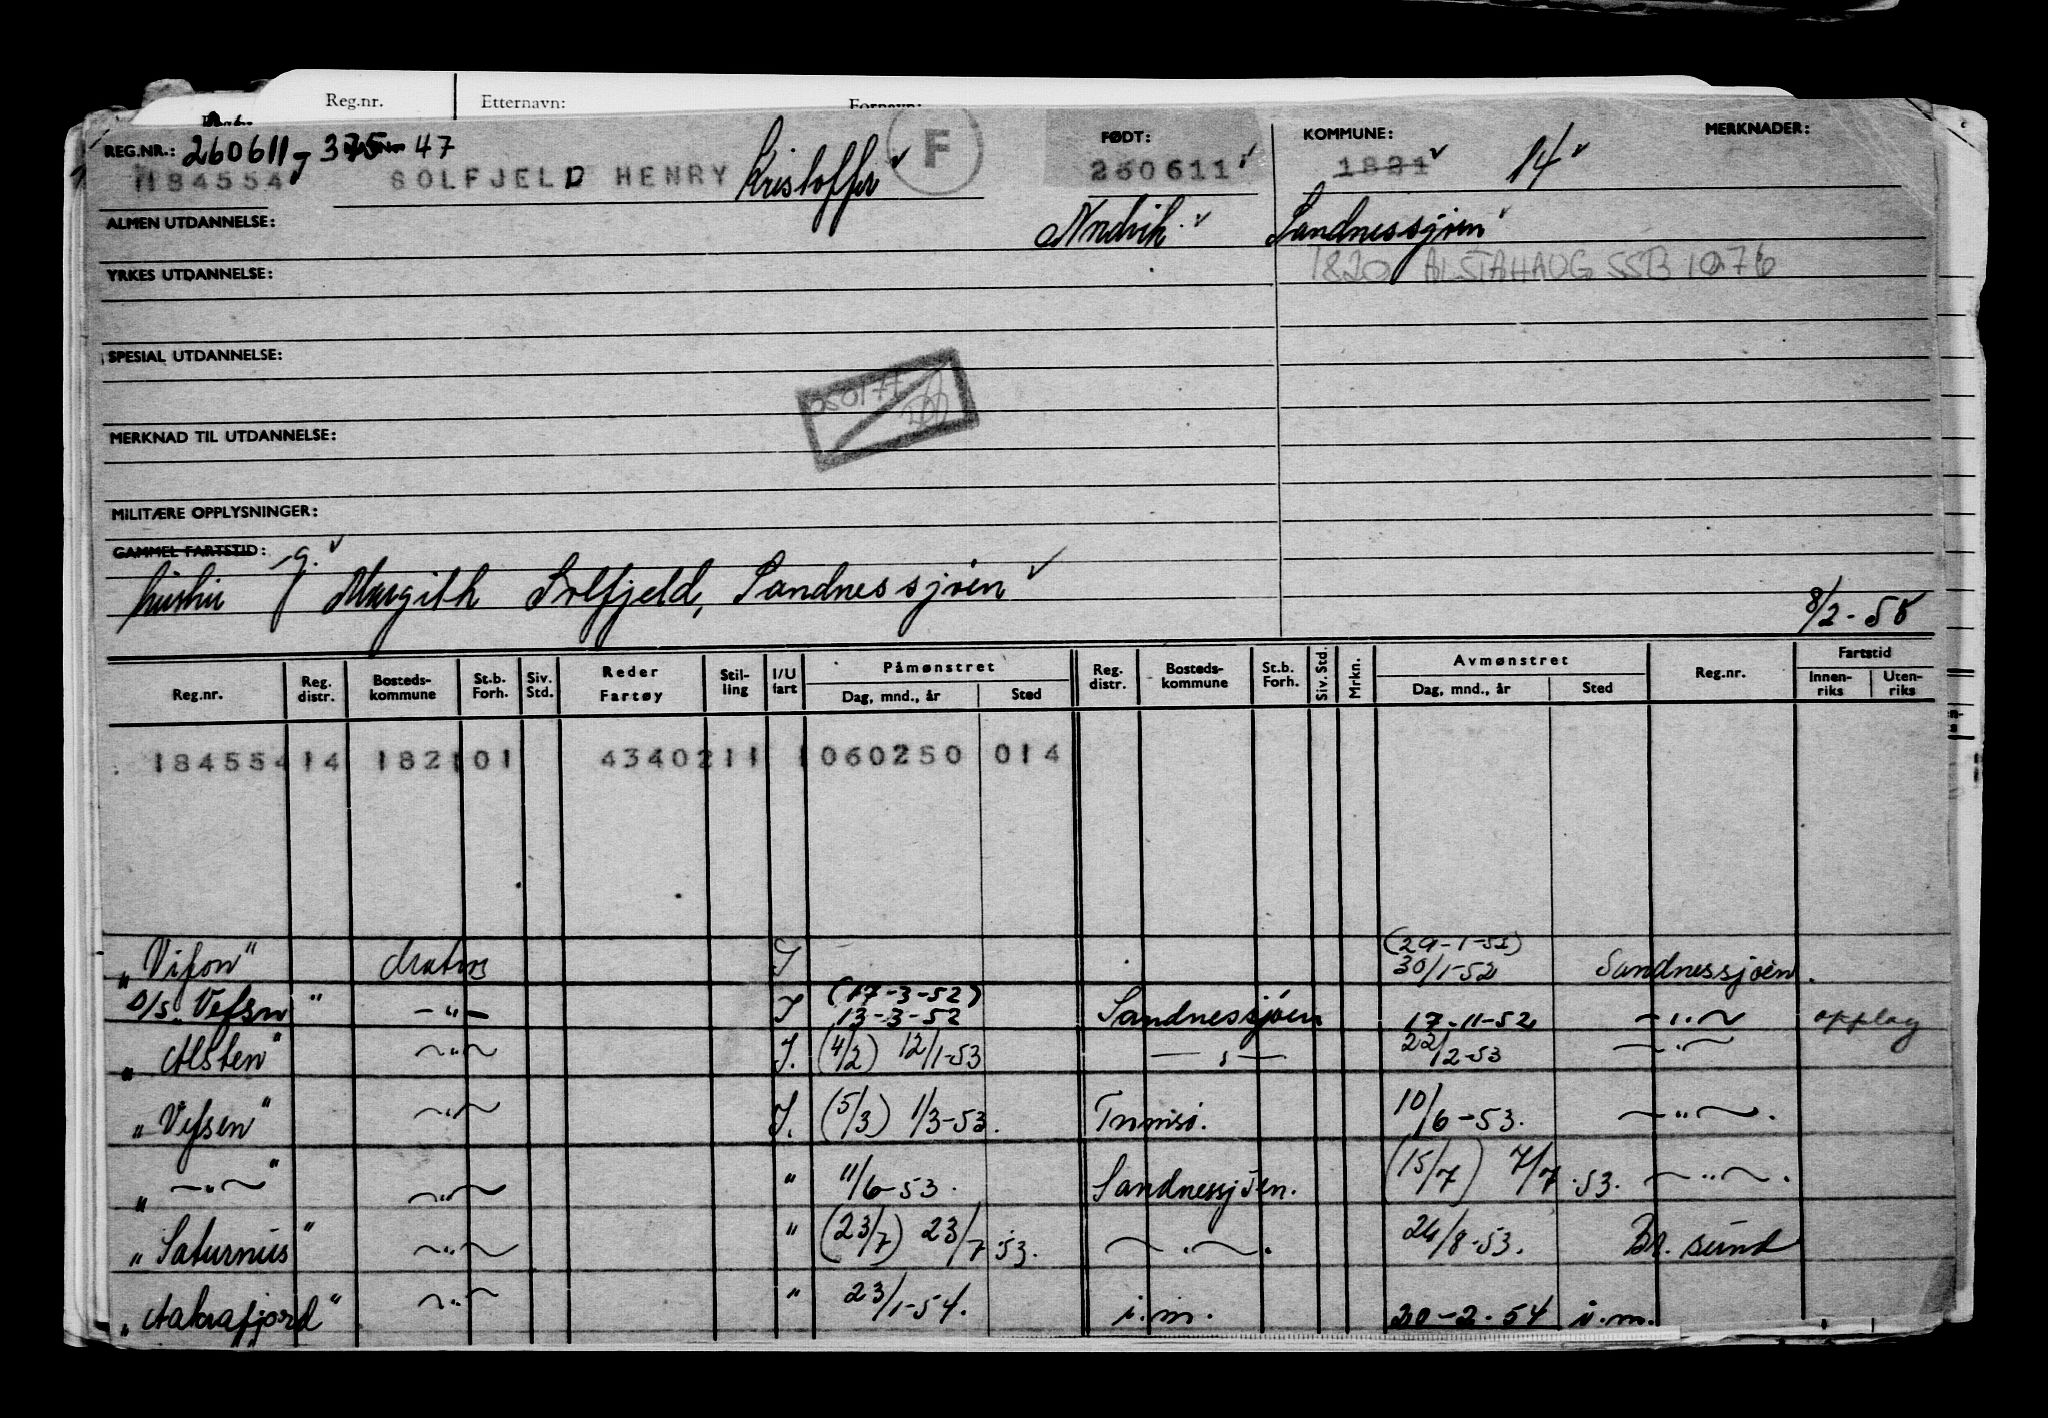 Reg.nr. Etternavn: Fornavn:
REG.NR.: 260611 - 375 47 F FØDT: KOMMUNE: MERKNADER:
184554 SOLFJELD HENRY Kristoffer 260611 1821 14
ALMEN UTDANNELSE: Sandnessjøen
YRKES UTDANNELSE: 1820 ALSTAHAUG SSB 1076
SPESIAL UTDANNELSE:
050177
MERKNAD TIL UTDANNELSE:
MILITÆRE OPPLYSNINGER:
GAMMEL FARTSTID: g.
hustru Margith Solfjeld, Sandnessjøen 8/2-50
Reg.nr. Reg. distr. Bosteds-kommune St.b. Forh. Siv. Std. Reder Fartøy Stil-ling I/U fart Påmønstret Dag, mnd., år Sted Reg. distr. Bosteds-kommune St.b. Forh. Siv. Std. Mrkn. Avmønstret Dag, mnd., år Sted Reg.nr. Fartstid Innen-riks Uten-riks
184554 14 1821 01 4340211 1 060250 014
(29-1-52)
„Vifon" Matros I 30/1-52 Sandnessjøen.
(17-3-52)
D/S „Vefsn" -"- I 13-3-52 Sandnessjøen 17-11-52 -"- opplag
„Alsten" -"- I. (4/2) 12/1-53 -"- 22/12-53 -"-
„Vefsen" -"- I. (5/3) 1/3-53. Tromsø. 10/6-53. -"-.
„-"-" -"- " 11/6-53. Sandnessjøen. (15/7) 7/7.53. -"-.
„Saturnus" -"- " (23/7) 23/7 53. -"-. 26/8-53. Br. sund
„Aakrafjord" -"- " 23/1-54. i.m. 20-2-54 i.m.